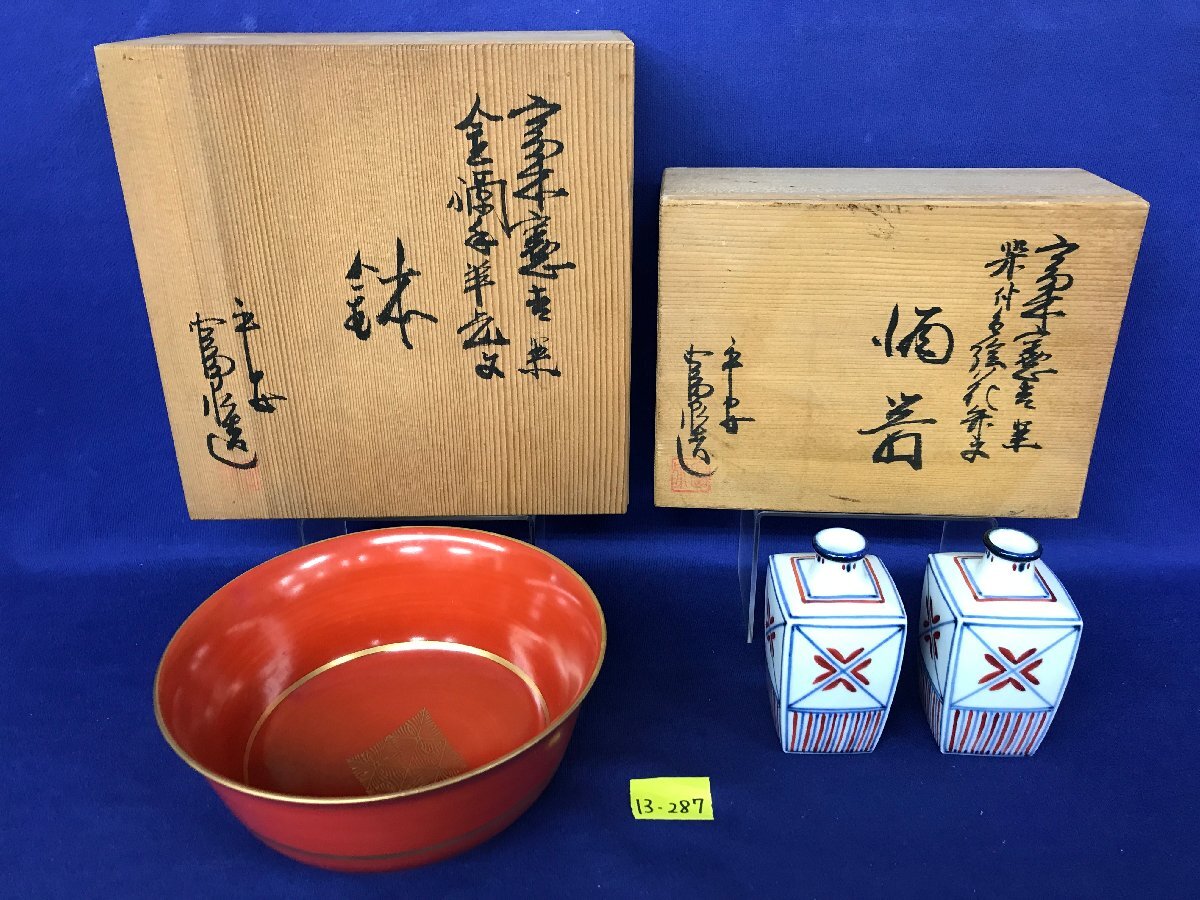 富本憲吉案
金襴手羊歯文
鉢
平安
造
富本憲吉案
染付色絵花弁文
酒器
平安
造
13-287